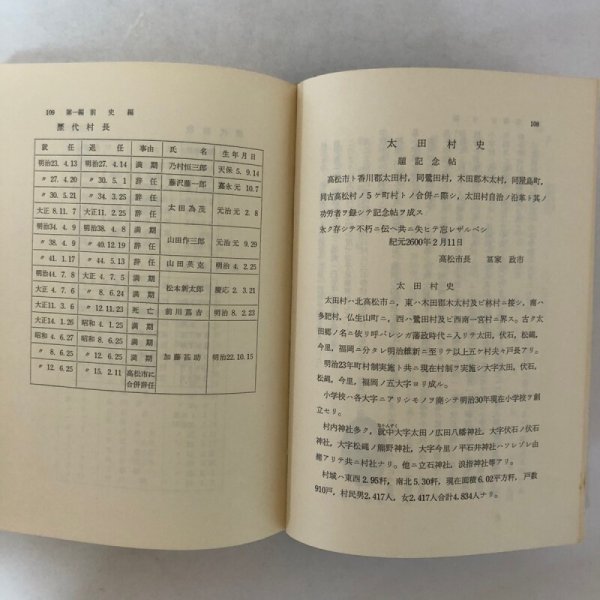 109 第一編 前史編
歴代村長
就任 退任 事由 氏名 生年月日
明治23. 4.13 明治27. 4.14 満期 乃村恒三郎 天保 5. 9.14
〃 27. 4.20 〃 30. 5. 1 辞任 藤沢藤一郎 嘉永元 10.7
〃 30. 5.21 〃 34. 3.25 辞任 太田為茂 元治元 2. 8
大正 8.11. 7 大正11. 2.25 満期
明治34. 4. 9 明治38. 4. 4 辞任 山田作三郎 元治元 9.29
〃 38. 4. 9 〃 40.12.19 辞任
〃 41. 4. 4 〃 44. 5.13 辞任 山田英克 明治 4. 2.25
明治44. 7. 8 大正 4. 7. 5 満期 松本新太郎 慶応 2. 3.21
大正 4. 7. 8 〃 8. 6.24 満期
大正11. 3. 6 〃 12.11.23 死亡 前川嶌吉 明治 8. 2.23
大正14. 1.26 昭和 4. 1.25 満期 加藤甚助 明治22.10.15
昭和 4. 6.27 昭和 8. 6.25 満期
〃 8. 6.25 〃 12. 6.25 満期
〃 12. 6.25 〃 15. 2.11 高松市に合併辞任
108
太田村史
題記念帖
高松市ト香川郡太田村，同鷺田村，木田郡木太村，同屋島町，
同古高松村ノ5ケ町村トノ合併ニ際シ，太田村自治ノ沿革ト其ノ
功労者ヲ録シテ記念帖ヲ成ス
永ク存シテ不朽ニ伝ヘ共ニ失ヒテ忘レザルベシ
紀元2600年2月11日
高松市長 冨家政市
太田村史
太田村ハ北高松市ニ，東ハ木田郡木太村及ビ林村ニ接シ，南ハ
多肥村，仏生山町ニ，西ハ鷺田村及ビ西南一宮村ニ界ス。古ヲ太
田郷ノ名ニ依リ呼バレシガ藩政時代ニ入リテ太田，伏石，松縄，
今里，福岡ニ分タレ明治維新ニ至リテ以上五ケ村夫々戸長アリ。
明治23年町村制実施ト共ニ現在村制ヲ実施シ大字太田，伏石，
松縄，今里，福岡ノ五大字ヨリ成ル。
小学校ハ各大字ニアリシモノヲ廃シテ明治30年現在小学校ヲ創
立セリ。
村内神社多ク，就中大字太田ノ広田八幡神社，大字伏石ノ伏石
神社，大字松縄ノ熊野神社，大字今里ノ平石井神社ハソレゾレ由
緒アリテ共ニ村社ナリ。他ニ立石神社，浪指神社等アリ。
村城ハ東西2.95粁，南北5.30粁，現在面積6.02平方粁，戸数
910戸，村民男2,417人，女2,417人合計4,834人ナリ。